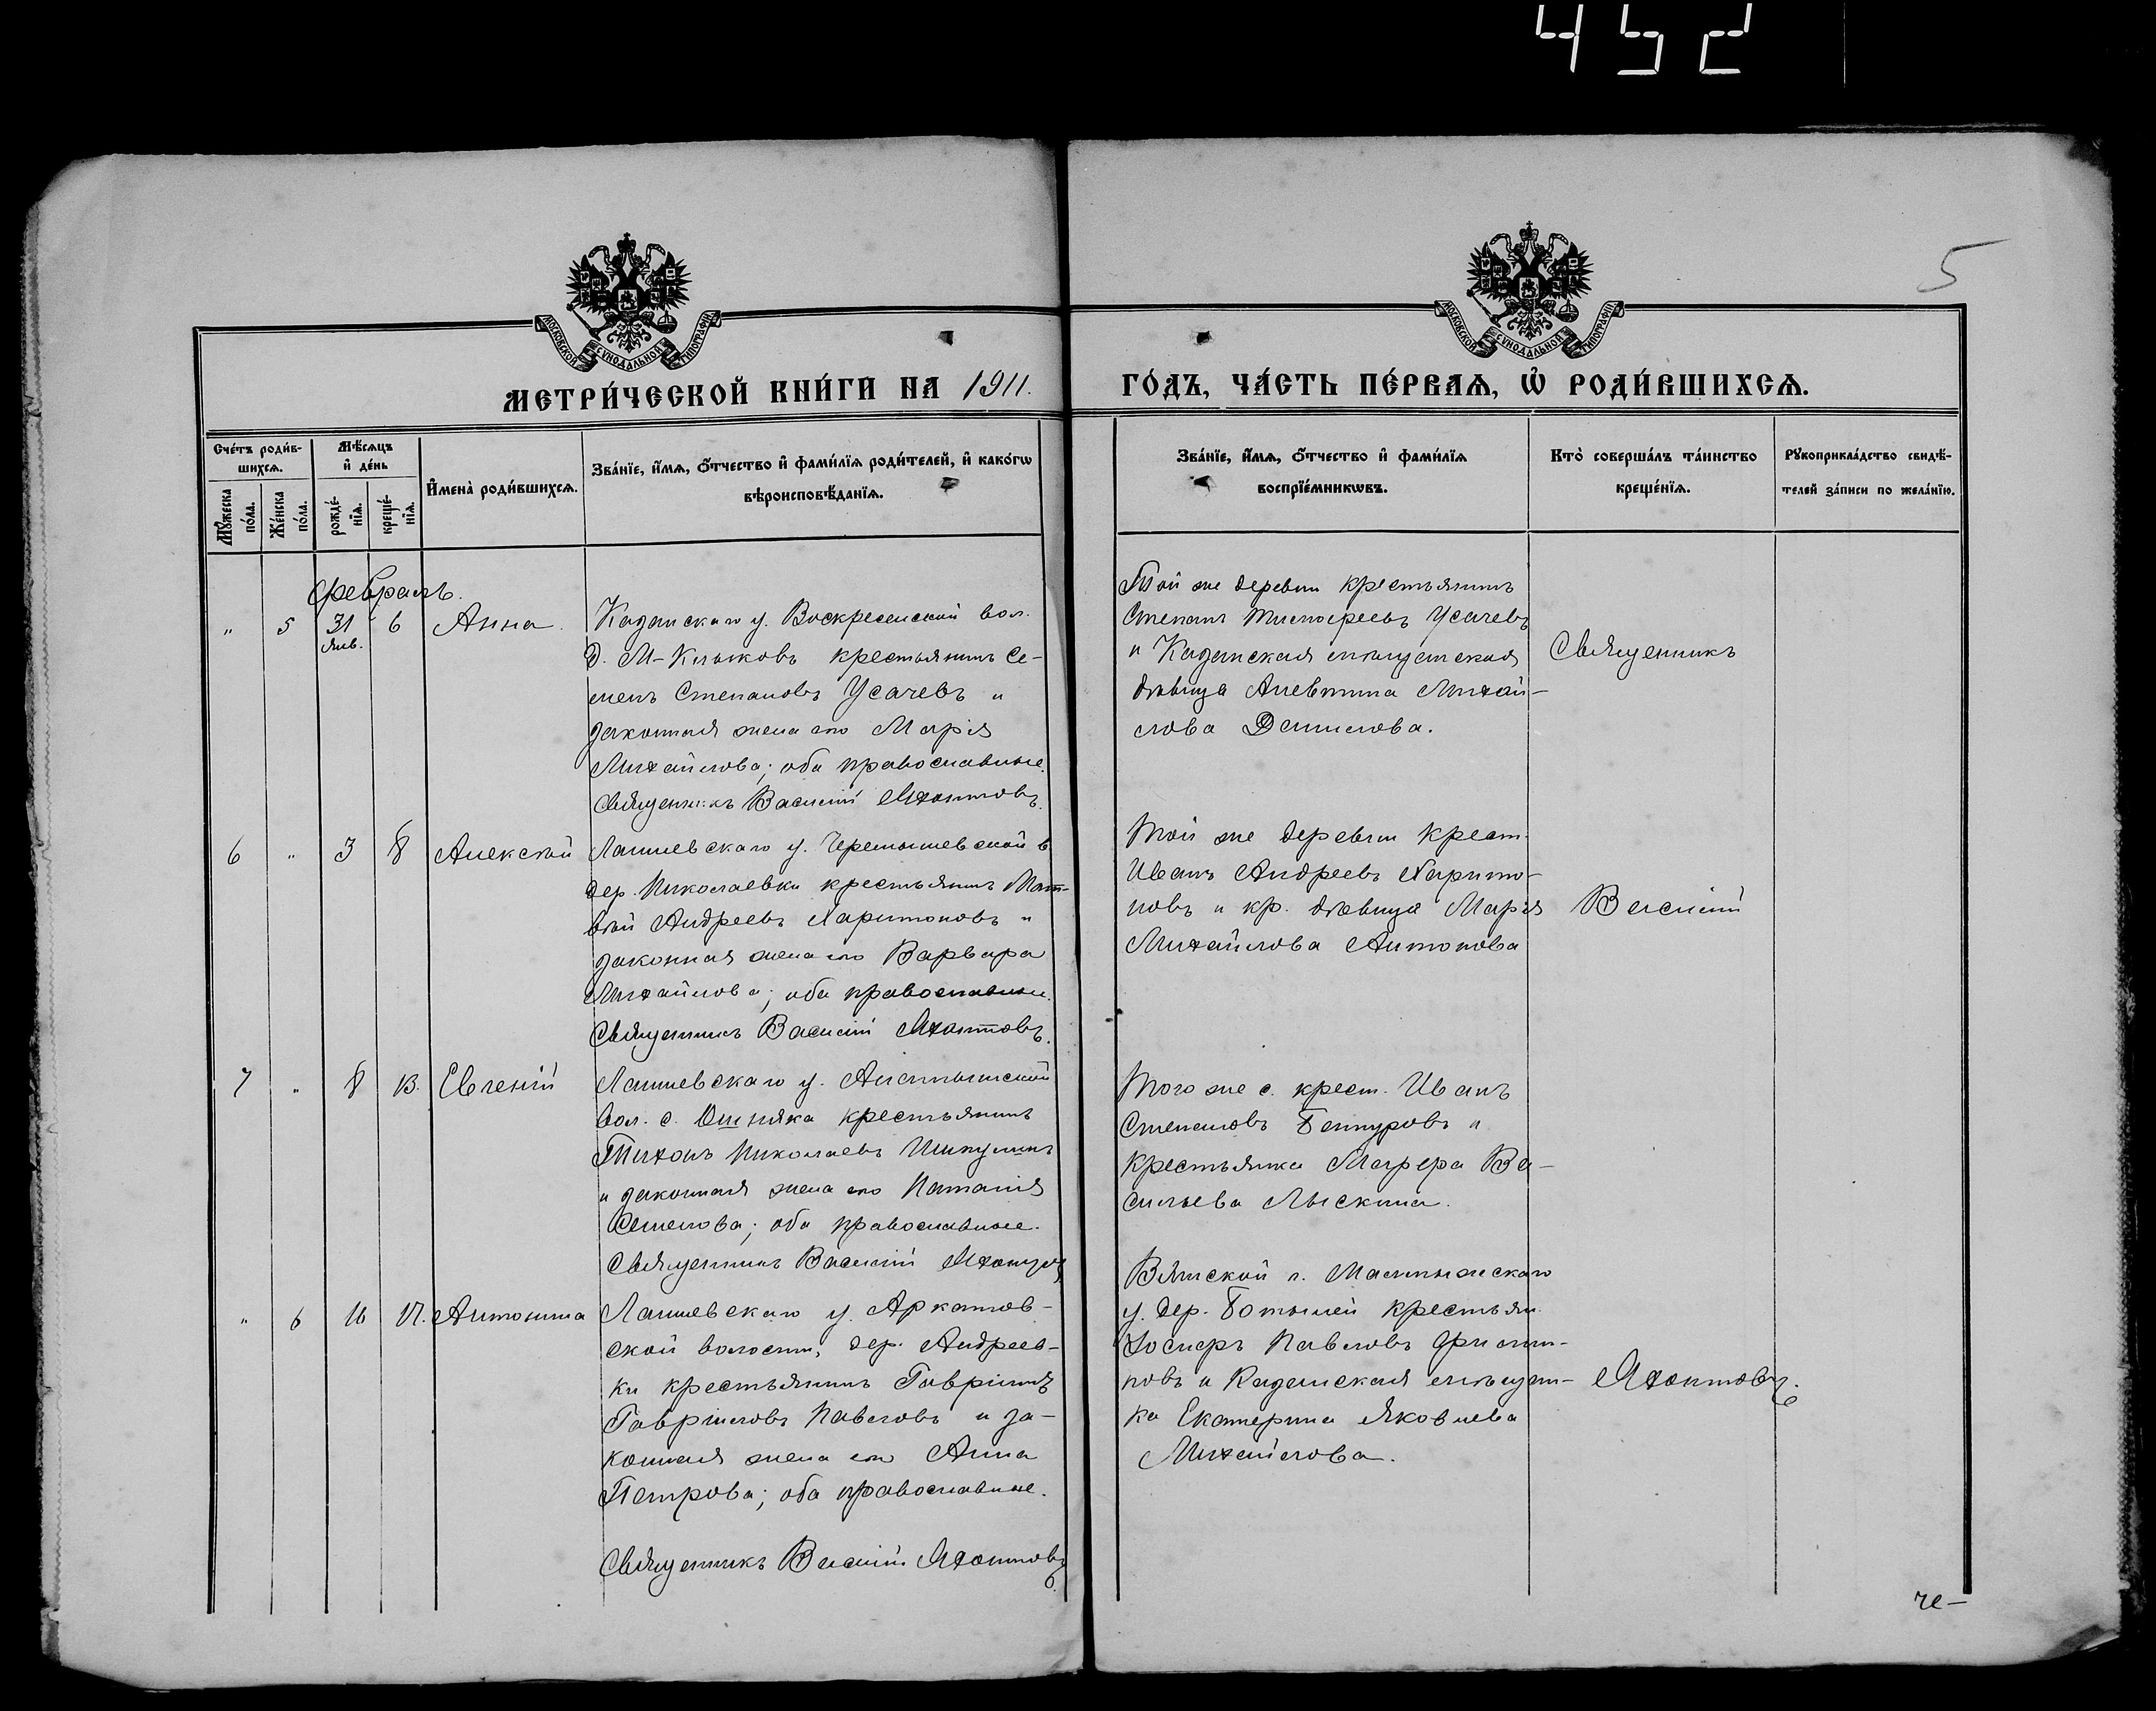 452
5
МОСКОВСКОЙ СѴНОДАЛЬНОЙ ТИПОГРАФІИ
МОСКОВСКОЙ СѴНОДАЛЬНОЙ ТИПОГРАФІИ
МЕТРИ́ЧЕСКОЙ КНИ́ГИ НА 1911. ГО́ДЪ, ЧА́СТЬ ПЕ́РВАѦ, Ѽ РОДИ́ВШИХСѦ.
Сче́тъ роди́в-
шихсѧ.
Мꙋ́жеска по́ла.
Же́нска по́ла.
Мѣ́сѧцъ
и҆ де́нь
рожде́-
нїѧ.
креще́-
нїѧ.
И҆мена̀ роди́вшихсѧ.
Зва́нїе, и҆́мѧ, ѻ҆́тчество и҆ фами́лїѧ роди́телей, и҆ како́гѡ
вѣроисповѣ́данїѧ.
Зва́нїе, и҆́мѧ, ѻ҆́тчество и҆ фами́лїѧ
воспрїе́мникѡвъ.
Кто̀ соверша́лъ та́инство
креще́нїѧ.
Рꙋкоприкла́дство свидѣ́-
телей за́писи по жела́нїю.
Февраль.
" 5 31 янв. 6 Анна.
Казанскаго у. Воскресенской вол.
д. М-Клыковъ крестьянинъ Се-
менъ Степановъ Усачевъ и
законная жена его Марія
Михайлова; оба православные.
Священникъ Василій Яхонтовъ.
Той же деревни крестьянинъ
Степанъ Тимофеевъ Усачевъ
и Казанская мѣщанская
дѣвица Алевтина Михай-
лова Данилова.
Священникъ
6 " 3 8 Алексѣй
Лаишевскаго у. Черемышевской в
дер. Николаевки крестьянинъ Мат-
вѣй Андреевъ Харитоновъ и
законная жена его Варвара
Михайлова; оба православные.
Священникъ Василій Яхонтовъ.
Той же деревни крест.
Иванъ Андреевъ Харито-
новъ и кр. дѣвица Марія
Михайлова Антонова
Василій
7 " 8 13. Евгеній
Лаишевскаго у.
вол. с. Ошняка крестьянинъ
Тихонъ Николаевъ
и законная жена его Наталія
Семенова; оба православные.
Священникъ Василій Яхонтовъ
Того же с. крест. Иванъ
Степановъ и
крестьянка Марфа Ва-
сильева Лыскина.
" 6 16 17. Антонина
Лаишевскаго у. Аркатов-
ской волости, дер. Андреев-
ки крестьянинъ Гавріилъ
Гавриловъ Павловъ и за-
конная жена его Анна
Петрова; оба православные.
Священникъ Василій Яхонтовъ
Вятской г. Малмыжскаго
у. дер. крестьян.
Іосифъ Павловъ Филип-
повъ и Казанская мѣщан-
ка Екатерина Яковлева
Михайлова.
Яхонтовъ.
че-